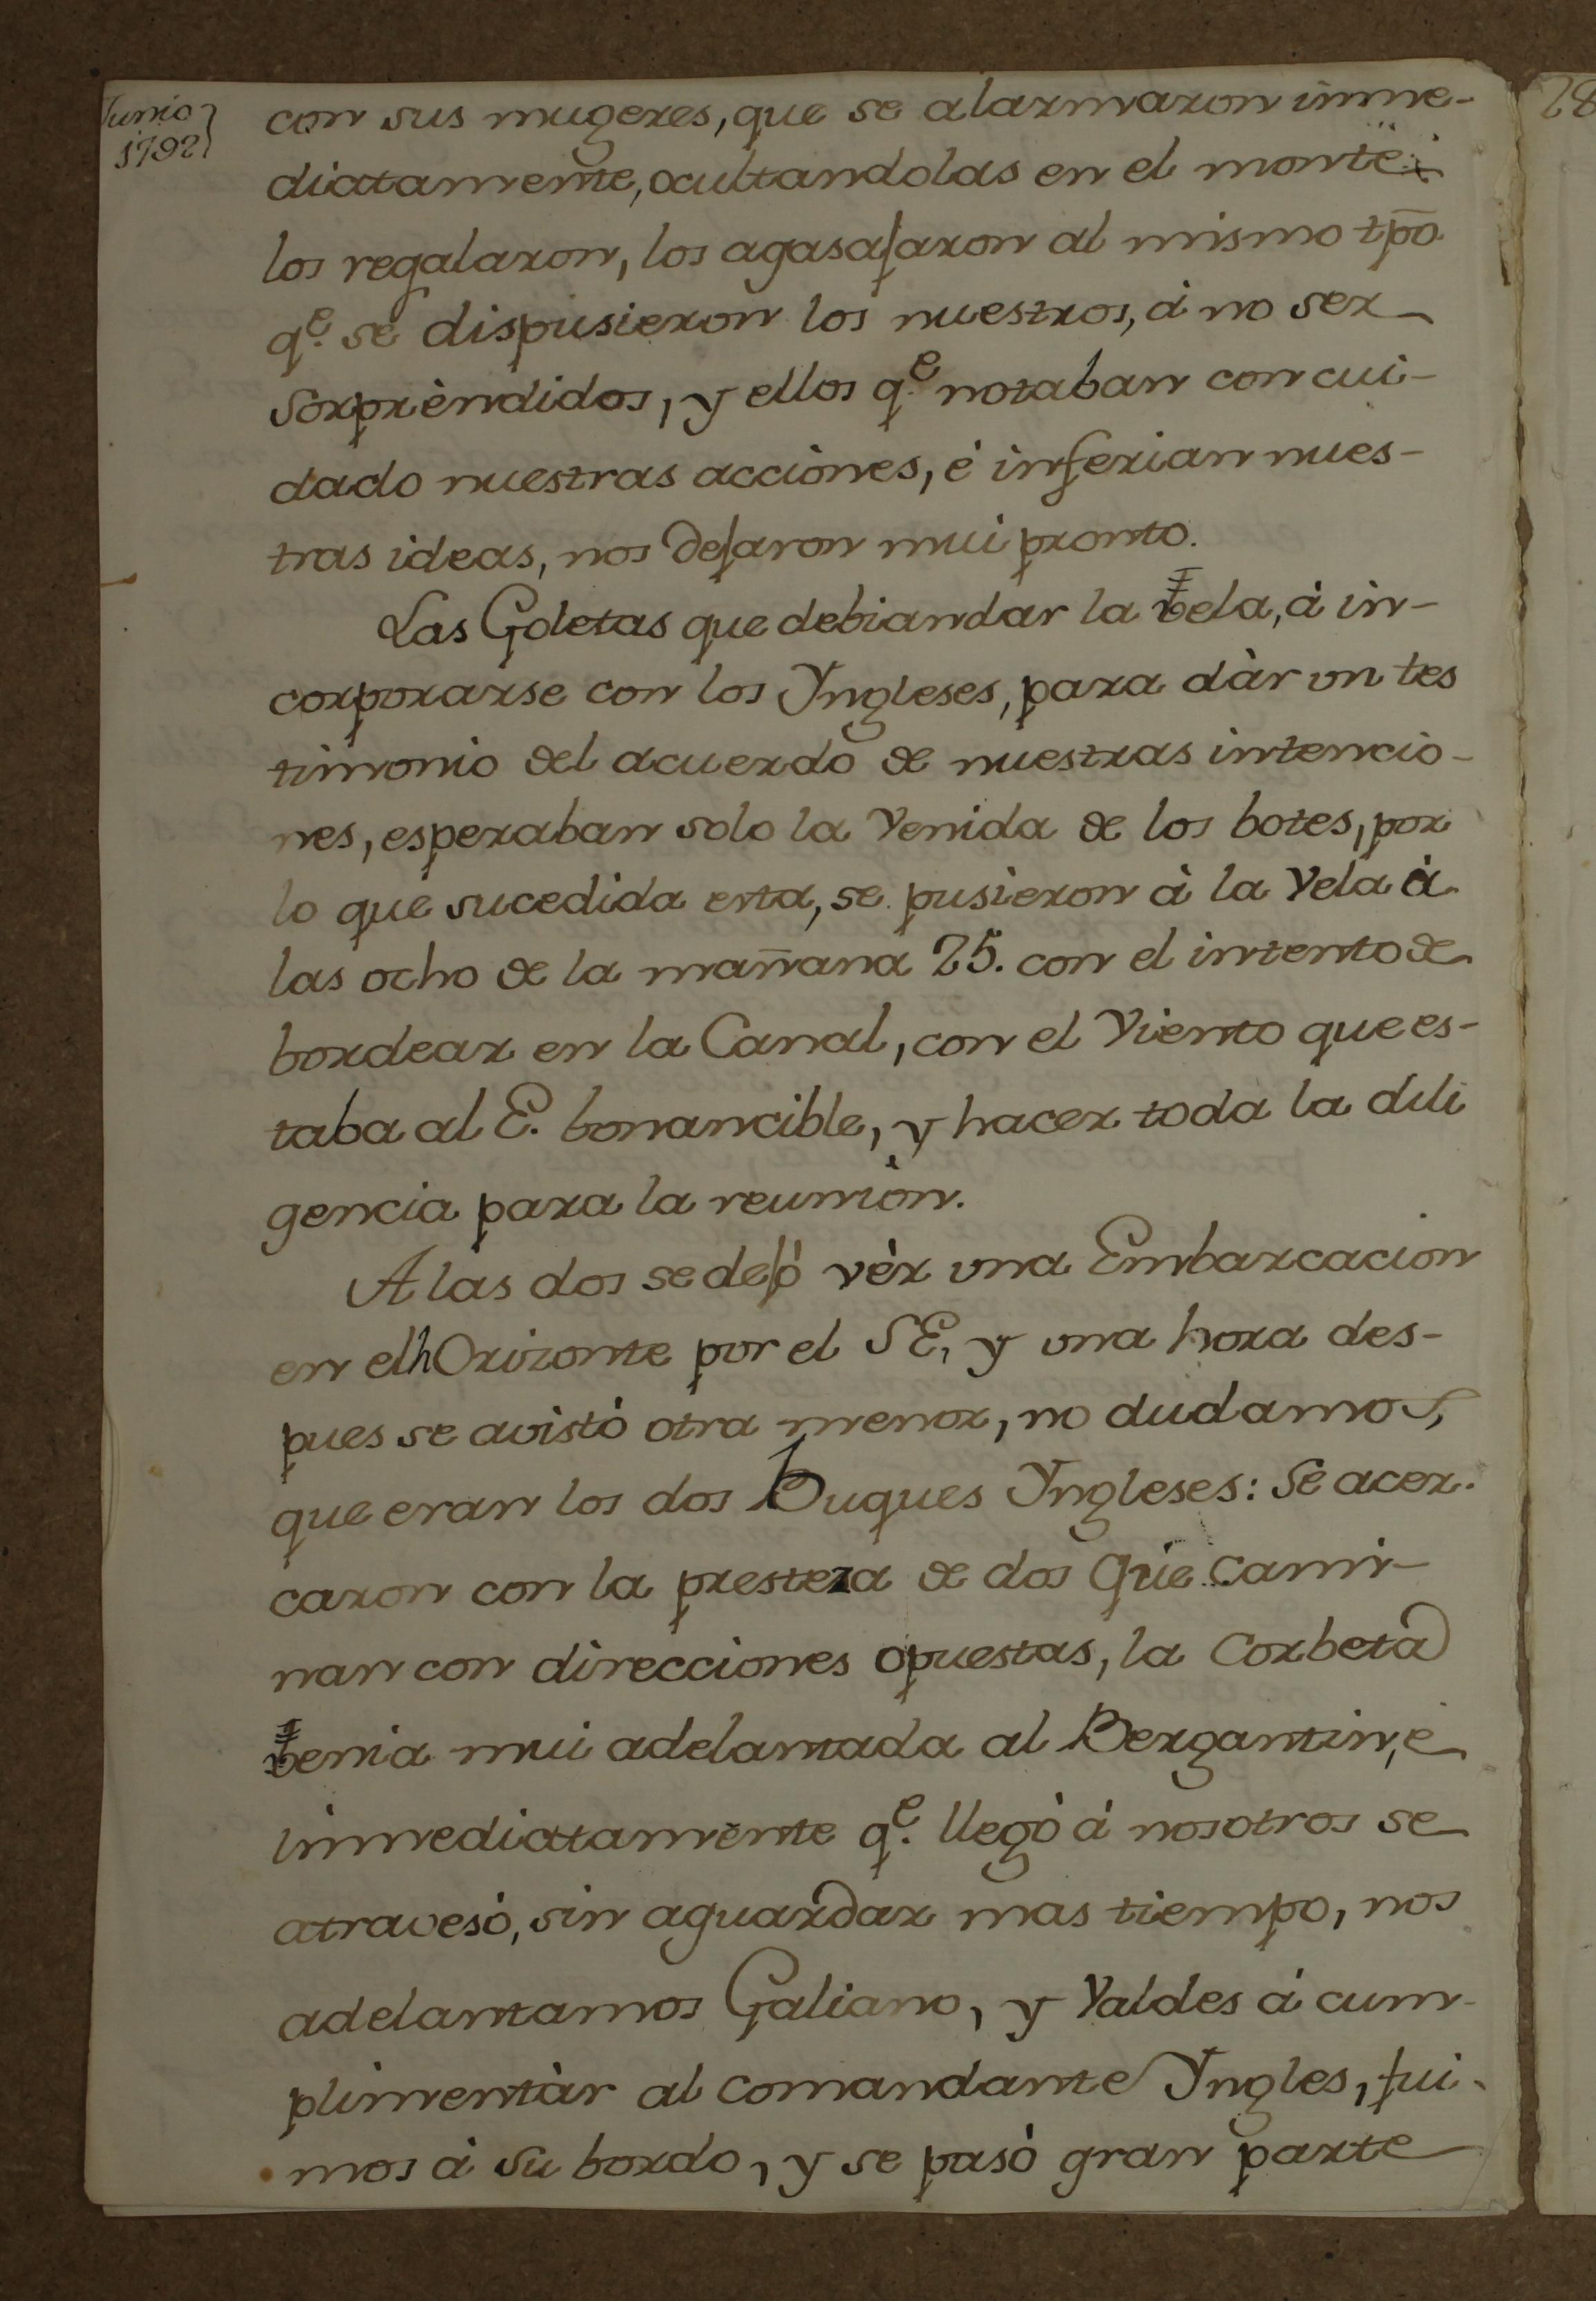 Junio
1792
con sus mugeres, que se alarmaron inme-
diatamente, ocultandolas en el monte:
los regalaron, los agasajaron al mismo tp̄o.
qe. se dispusieron los nuestros, á no ser
sorprèndidos, y ellos qe. notaban con cui-
dado nuestras acciònes, é inferian nues-
tras ideas, nos dejaron mui pronto.
Las Goletas que debian dar la vela, á in-
corporarse con los Yngleses, para dàr un tes
timonio del acuerdo de nuestras intencio-
nes, esperaban solo la Venida de los botes, por
lo que sucedida esta, se pusieron à la Vela à
las ocho de la mañana 25. con el intento de
bordear en la Canal, con el Viento que es-
taba al E. bonancible, y hacer toda la dili
gencia para la reunión.
A las dos se dejó vèr una Embarcacion
en el hOrizonte por el SE, y una hora des-
pues se avistó otra menor, no dudamos,
que eran los dos Buques Yngleses: Se acer-
caron con la presteza de dos que cami-
nan con direcciones opuestas, la Corbeta
venia mui adelantada al Bergantin, é
immediatamente qe. llegò á nosotros se
atravesó, sin aguardar mas tiempo, nos
adelantamos Galiano, y Valdes á cum-
plimentàr al Comandante Yngles, fui-
mos á su bordo, y se pasó gran parte